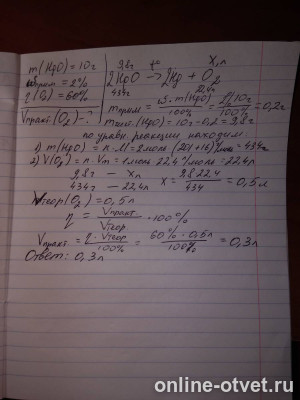 m(HgO)=10г
ωприм=2%
η(O₂)=60%
Vпракт(O₂)-?
9,8г t° Xл
2HgO → 2Hg + O₂
434г 22,4л
mприм = ω·m(HgO)/100% = 2%·10г/100% = 0,2г
mчист.(HgO)=10г-0,2=9,8г
по уравн. реакции находим
1) m(HgO)=n·M=2моль·(201+16)г/моль=434г
2) V(O₂)=n·Vm=1моль·22,4л/моль=22,4л
9,8г — Xл
434г — 22,4л X = 9,8·22,4/434 = 0,5л
Vтеор(O₂)=0,5л
η = Vпракт/Vтеор ·100%
Vпракт. = η·Vтеор/100% = 60%·0,5л/100% = 0,3л
Ответ: 0,3л
online-otvet.ru